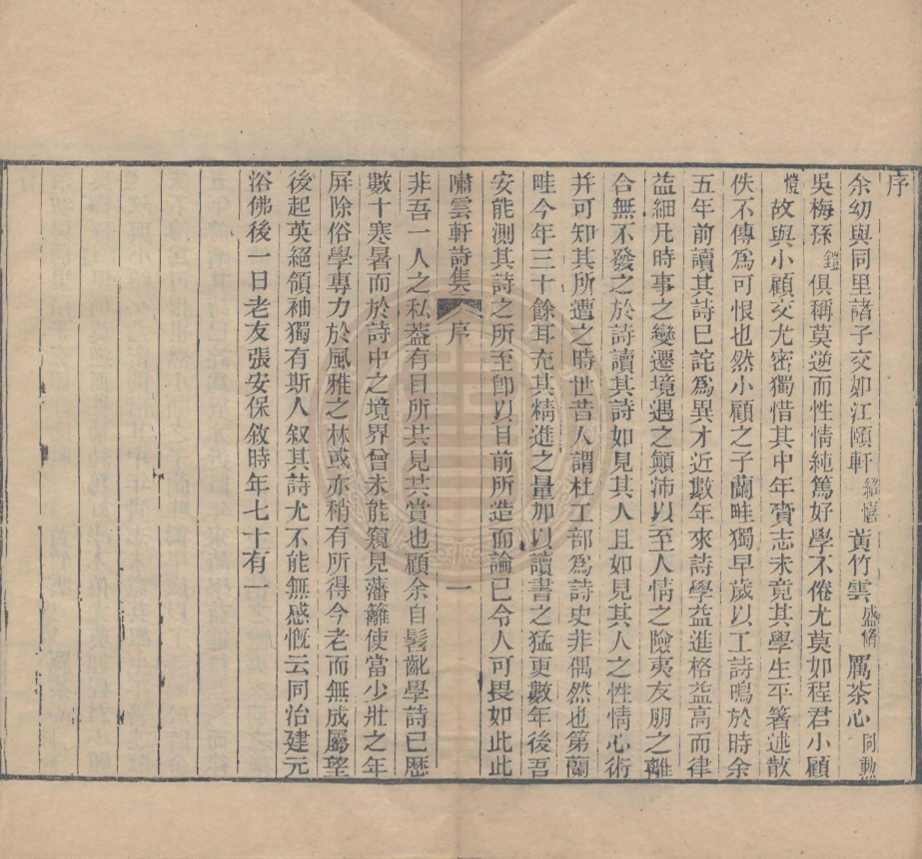 序
余幼與同里諸子交如江頤軒紹僖黃竹雲盛修厲茶心同勳
吳梅孫鎧俱稱莫逆而性情純篤好學不倦尤莫如程君小顧
愷故與小顧交尤密獨惜其中年齎志未竟其學生平箸述散
佚不傳爲可恨也然小顧之子蘭畦獨早歲以工詩鳴於時余
五年前讀其詩已詫爲異才近數年來詩學益進格益高而律
益細凡時事之變遷境遇之顚沛以至人情之險夷友朋之離
合無不發之於詩讀其詩如見其人且如見其人之性情心術
并可知其所遭之時世昔人謂杜工部爲詩史非偶然也第蘭
畦今年三十餘耳充其精進之量加以讀書之猛更數年後吾
安能測其詩之所至卽以目前所造而論已令人可畏如此此
嘯雲軒詩集 序 一
非吾一人之私葢有目所共見共賞也顧余自髫齔學詩已歷
數十寒暑而於詩中之境界曾未能窺見藩籬使當少壯之年
屏除俗學專力於風雅之林或亦稍有所得今老而無成屬望
後起英絕領袖獨有斯人叙其詩尤不能無感慨云同治建元
浴佛後一日老友張安保敘時年七十有一